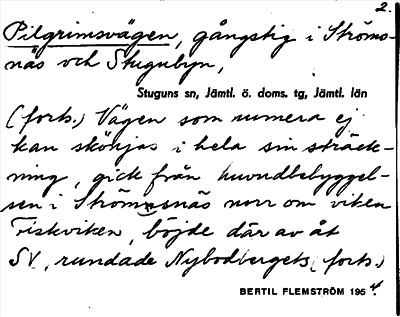 2.
Pilgrimsvägen, gångstig i Ströms-
näs och Stugubyn,
Stuguns sn, Jämtl. ö. doms. tg, Jämtl. län
(forts.) Vägen som numera ej
kan skönjas i hela sin sträck-
ning, gick från huvudbebyggel-
sen i Strömsnäs norr om viken
Fiskviken, böjde där av åt
SV, rundade Nybodbergets (forts.)
BERTIL FLEMSTRÖM 1954.